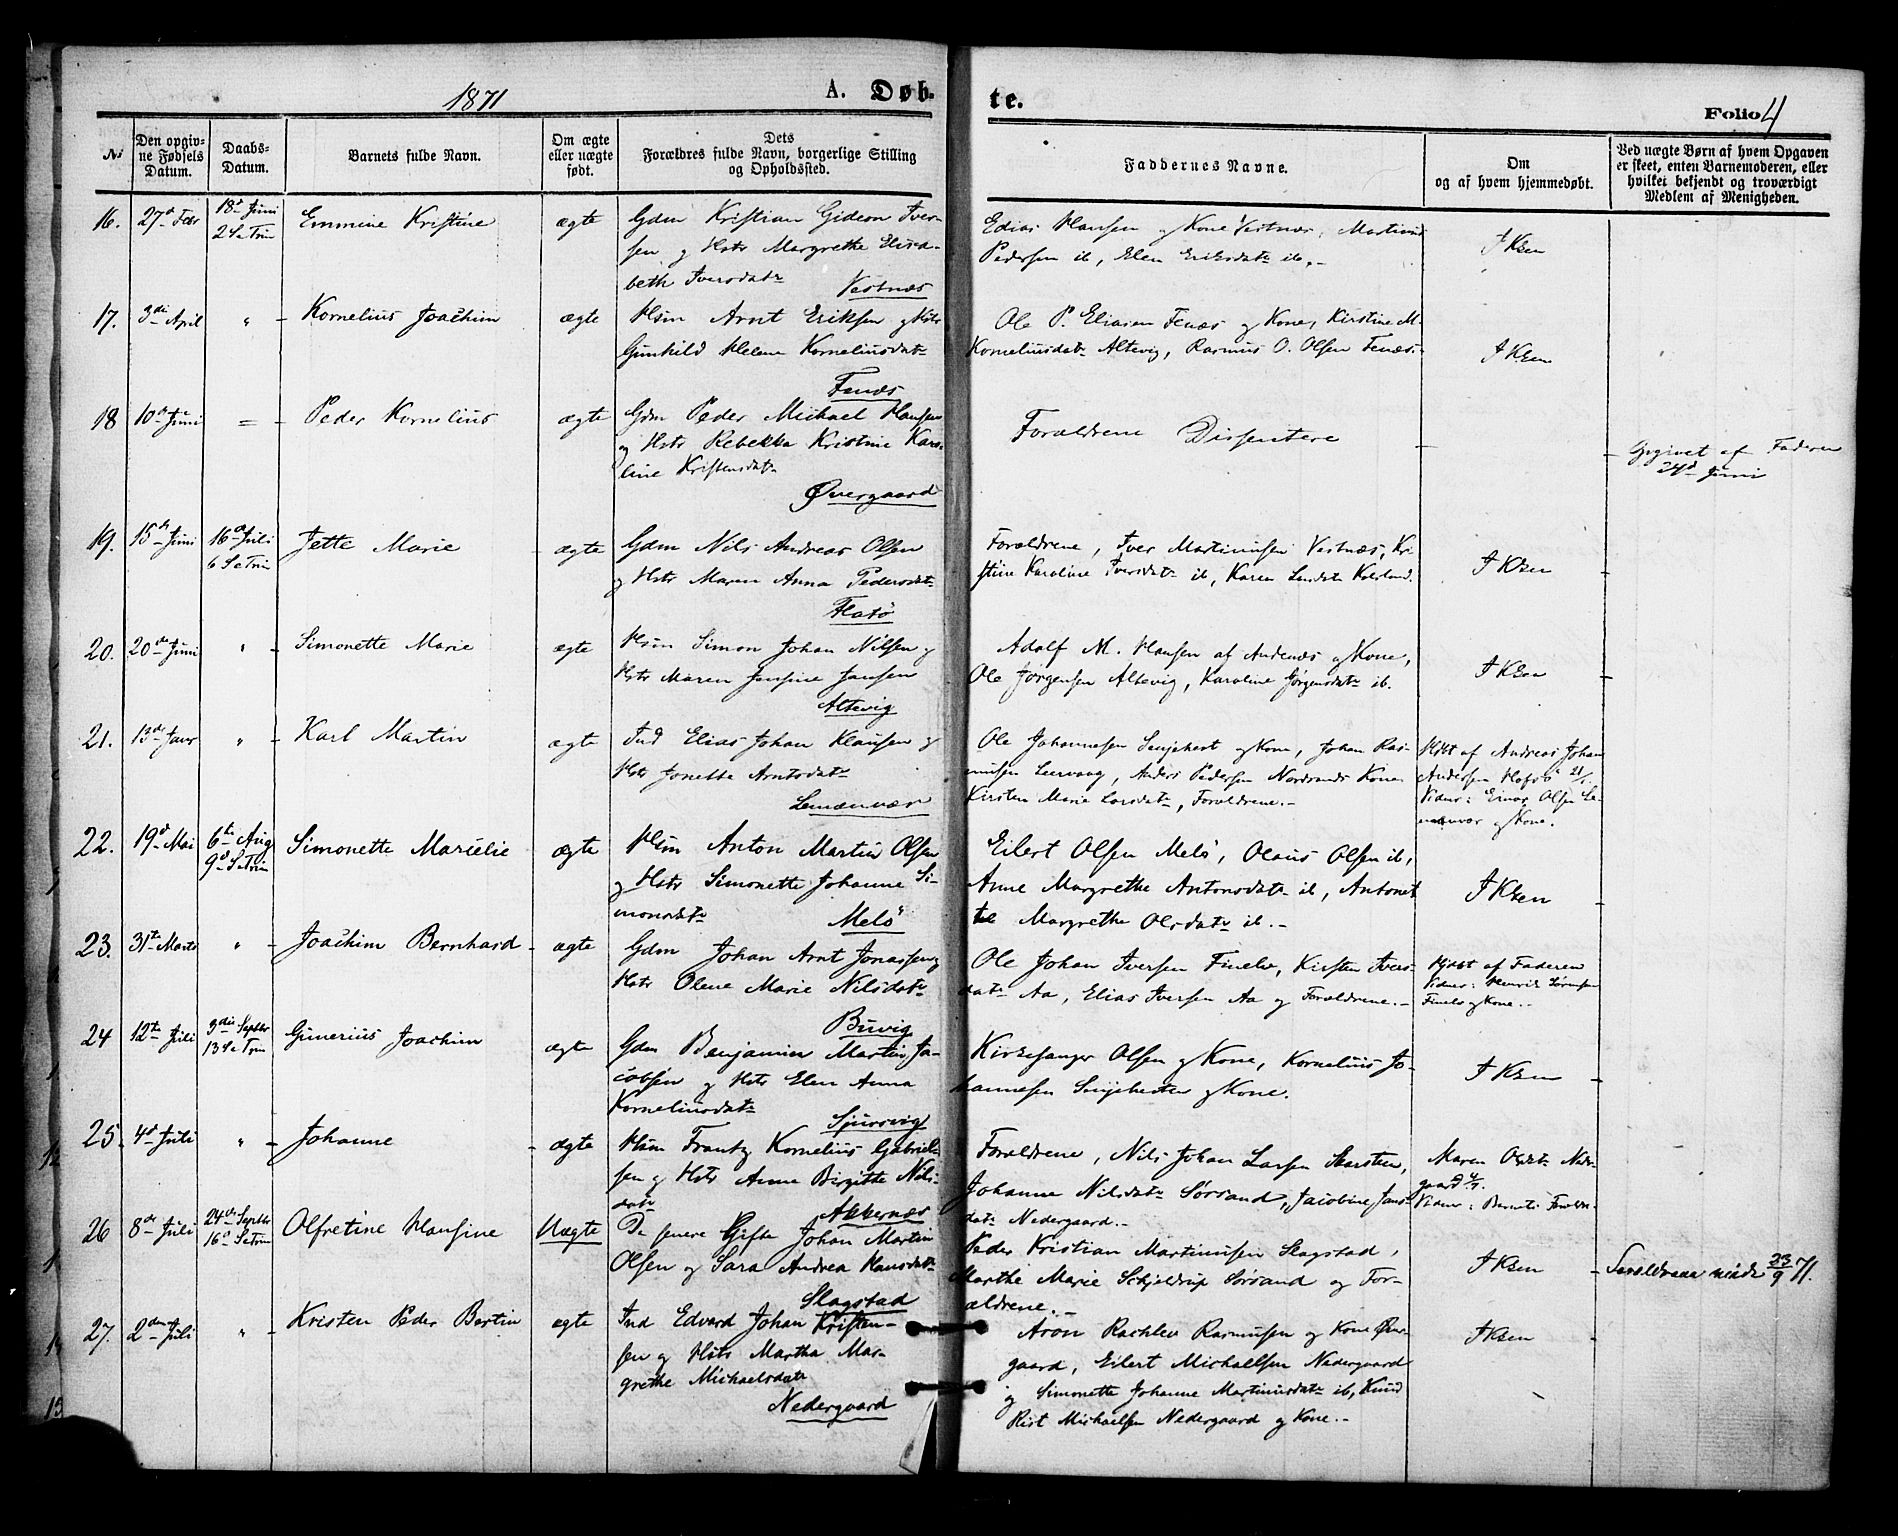 1871
A. Døb.
te.
Folio 4
No
Den opgiv-
ne Fødsels
Datum.
Daabs-
Datum.
Barnets fulde Navn.
Om ægte
eller uægte
født.
Dets
Forældres fulde Navn, borgerlige Stilling
og Opholdssted.
Faddernes Navne.
Om
og af hvem hjemmedøbt.
Ved uægte Børn af hvem Opgaven
er skeet, enten Barnemoderen, eller
hvilket bekjendt og troværdigt
Medlem af Menigheden.
16. 27d Febr 18d Juni
2 S e Trin
Emmine Kristine
ægte
Gdm Kristian Gideon Iver-
sen og Hstr Margrethe Elisa-
beth Iversdatr
Vestnæs
Edias Hansen og Kone Vestnæs, Martinus
Pedersen ib, Elen Eriksdatr ib.-
I Kken
17. 3die April " -
Kornelius Joachim
ægte
Hsm Arnt Eriksen og Hstr
Gunhild Helene Korneliusdatr
Finæs
Ole P. Eliasen Finæs og Kone, Kirstine M.
Korneliusdatr Altevig, Rasmus O. Olsen Finæs.
I Kken
18 10de Juni = -
Peder Kornelius
ægte
Gdm Peder Michael Hansen
og Hstr Rebekka Kristine Karo-
line Kristensdatr
Øvergaard
Forældrene Dissentere
-
- Opgivet af Faderen
24d Juni
19. 15de Juni 16de Juli
6 S e Trin
Jette Marie
- ægte
Gdm Nils Andreas Olsen
og Hstr Maren Anna Pedersdatr
Flatö
Forældrene, Iver Martinusen Vestnæs, Kri-
stine Karoline Iversdatr ib, Karen Larsdatr
I Kken -
20. 20de Juni " -
Simonette Marie
ægte
Hsm Simon Johan Nilsen og
Hstr Maren Jensine Jansen
Altevig
Adolf M. Hansen af Andenæs og Kone,
Ole Jørgensen Altevig, Karoline Jørgensdatr ib.
I Kken -
21. 13de Janr " -
Karl Martin
ægte
Ind Elias Johan Klausen og
Hstr Jonetta Arntsdatr
Lemænvær
Ole Johannesen Senjehest og Kone, Johan Ras-
musen Leervaag, Anders Pedersen Nordrands Kone
Kirsten Marie Larsdatr, Forældrene.-
Hjdbt af Andreas Johan
Andersen Hofsö 21/1.
Vidner: Einar Olsen Le-
menvær og Kone.
22. 19d Mai 6te Aug
9d S e Trin
Simonette Marielie
ægte
Hsm Anton Martin Olsen
og Hstr Simonette Johanne Si-
monsdatr
Melö
Eilert Olsen Melö, Olaus Olsen ib,
Anne Margrethe Antonsdatr ib, Antonet
te Margrethe Olsdatr ib.-
I Kken -
23. 31te Marts " -
Joachim Bernhard
- ægte
Gdm Johan Arnt Jonassen og
Hstr Olene Marie Nilsdatr
Buvig
Ole Johan Iversen Finelv, Kirsten Ivers-
datr Aa, Elias Iversen Aa og Forældrene.-
Hjdbt af Faderen
Vidner: Henrik Sørensen
Finelv og Kone.-
24 12te Juli 3die Septbr
13 S e Trin
Gunerius Joachim
ægte
Gdm Benjamin Martin Ja-
cobsen og Hstr Elen Anna
Korneliusdatr
Sjursvig
Kirkesanger Olsen og Kone, Kornelius Jo-
hannesen Senjehesten og Kone.
I Kken -
25. 4d Juli " -
Johanne
- ægte
Hsm Frantz Kornelius Gabriel-
sen og Hstr Anne Birgitte Nils-
datr
Akkernæs
Forældrene, Nils Johan Larsen
Johanne Nilsdatr Sørsand, Jacobine Jans-
datr Nedergaard.-
Maren Olsdatr Neder-
gaard
Vidner: Barnets Forældre.
26 8de Juli 24de Septbr
16d S e Trin
Olfretine Hansine
Uægte
De senere Gifte Johan Martin
Olsen og Sara Andrea Hansdatr
Slagstad
Peder Kristian Martinusen Slagstad,
Marthe Marie Schjeldrup Sørsand og For-
ældrene.-
I Kken
- Forældrene viede 23/9 71.
27. 2den Juli " -
Kristen Peder Bertin
ægte
Ind Edvard Johan Kristen-
sen og Hstr Martha Mar-
grethe Michaelsdatr
Nedergaard
Aron Rachlev Rasmusen og Kone Øver-
gaard, Eilert Michaelsen Nedergaard
og Simonette Johanne Martinusdatr ib, Knud
Rist Michaelsen Nedergaard og Kone.-
I Kken -